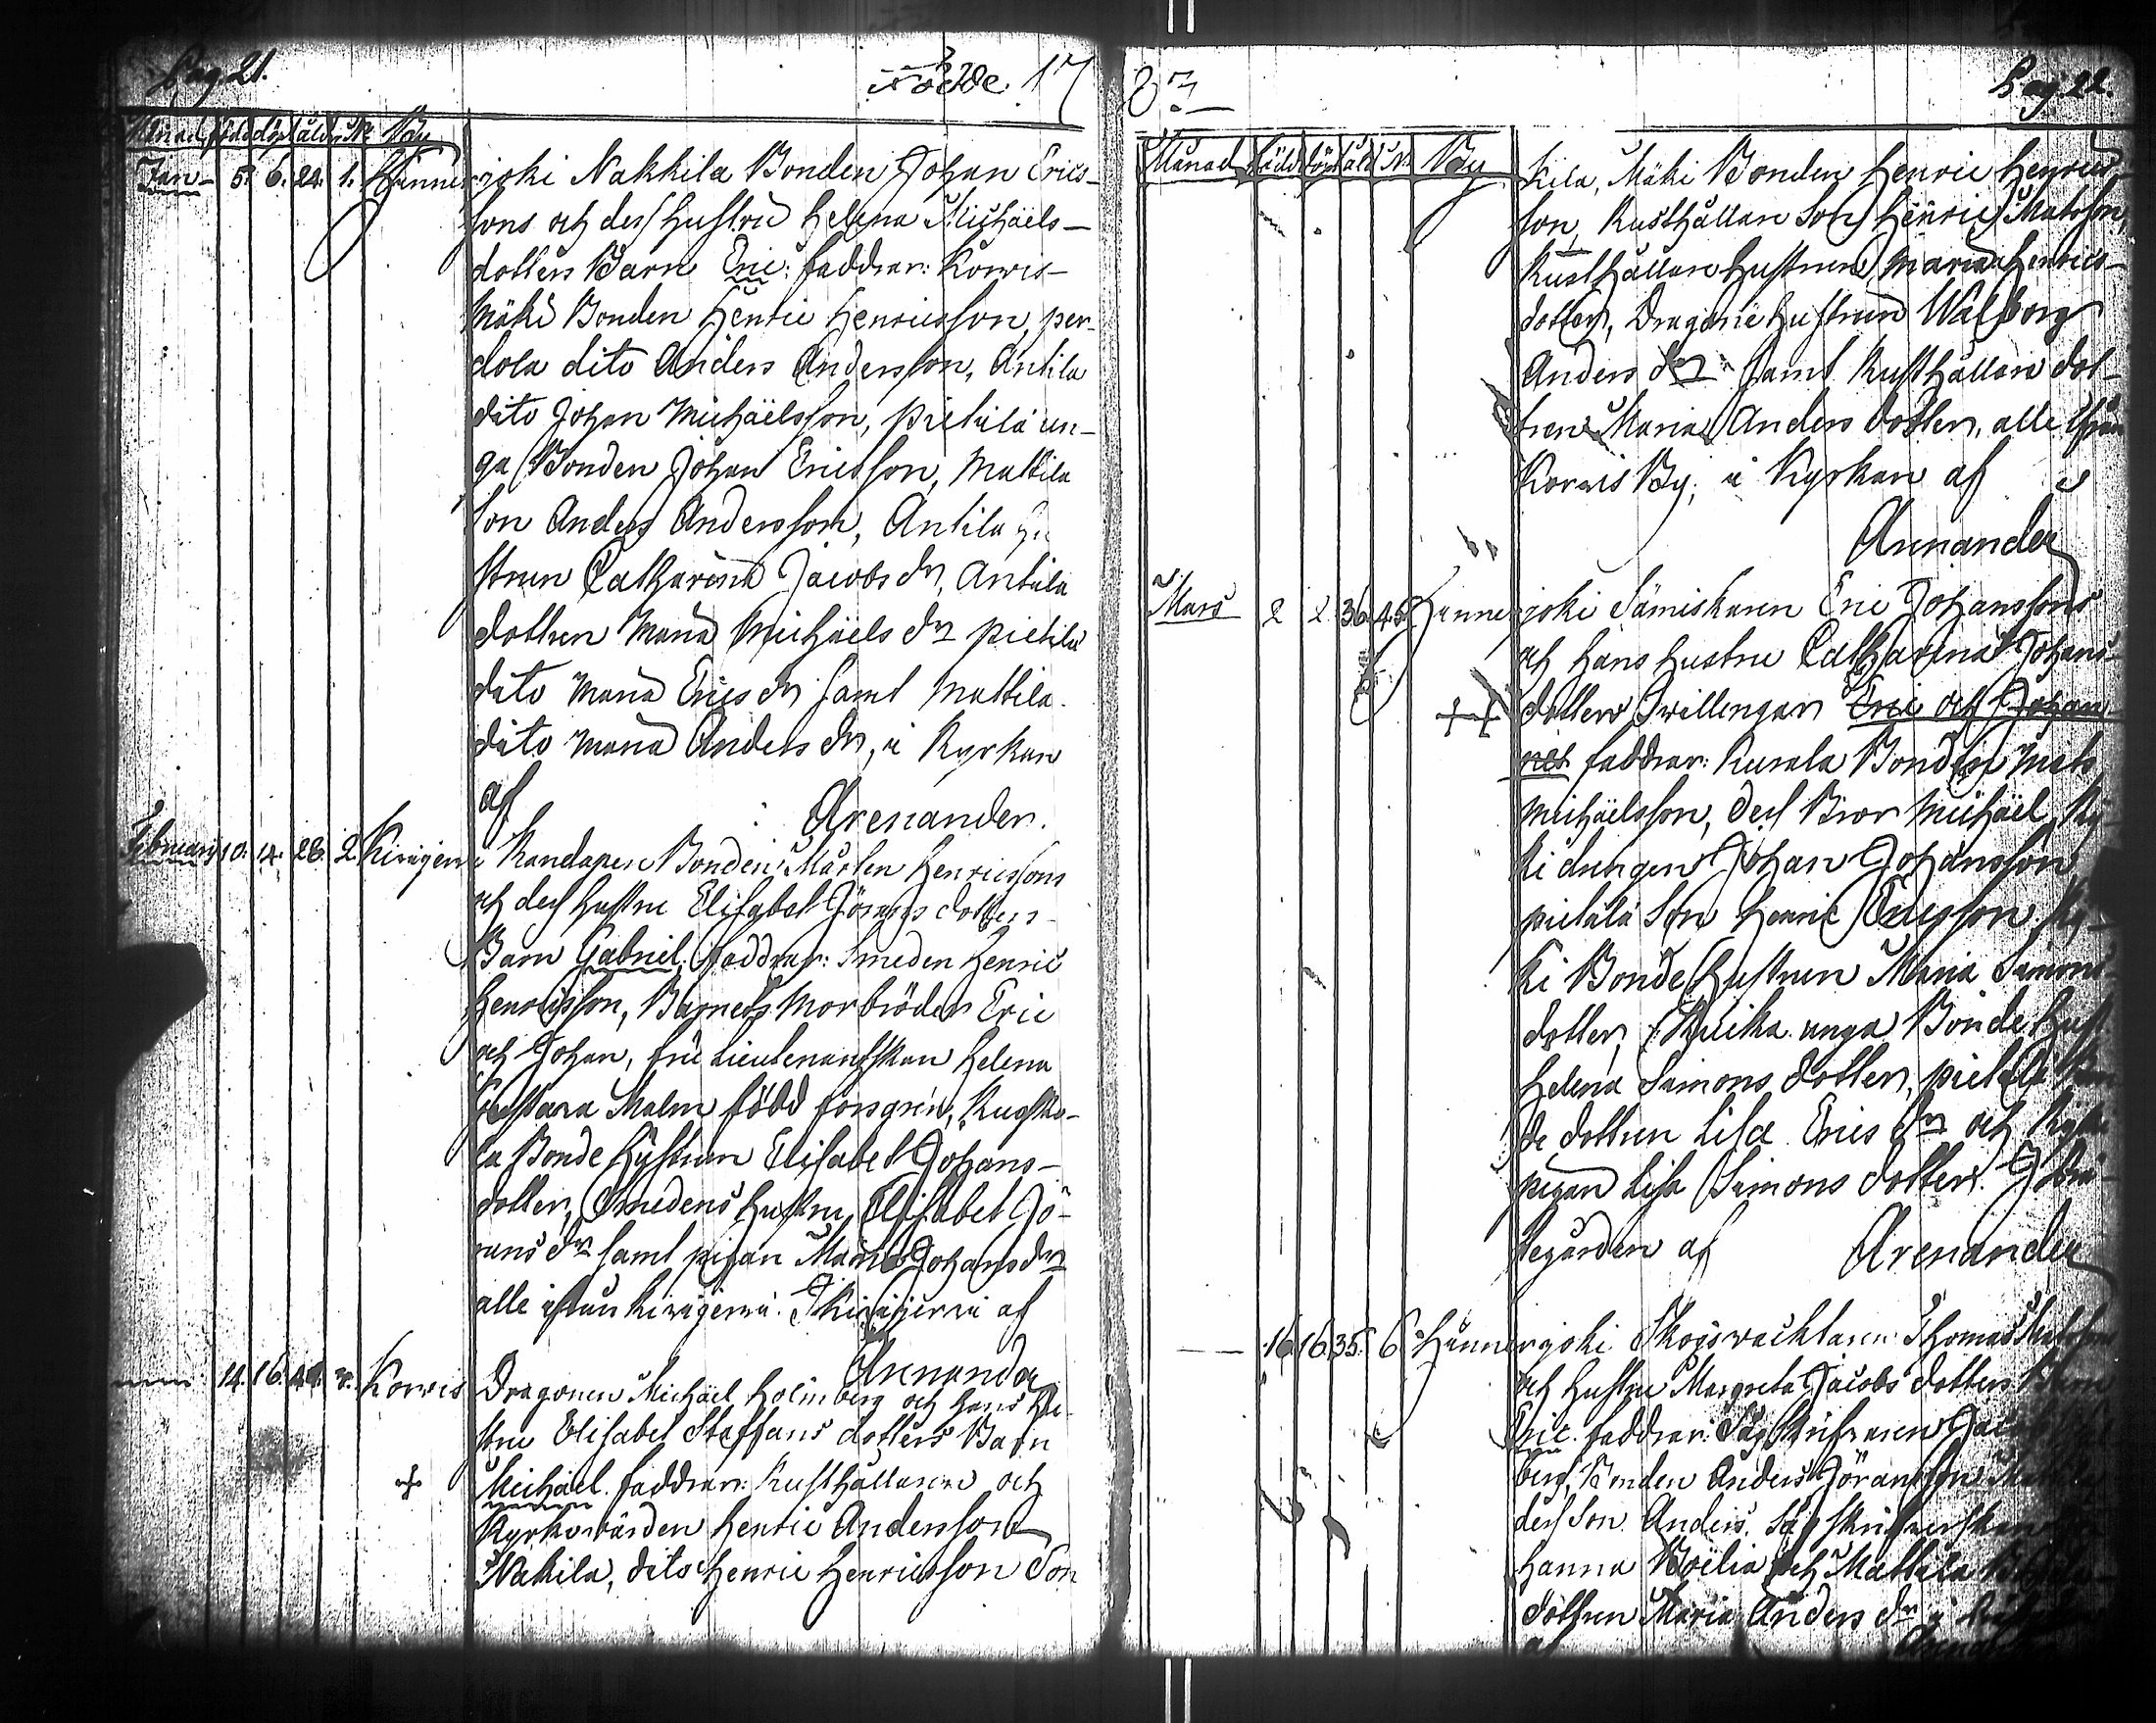 Pag. 21.
Födde 17
Månad födde döpt ålder N: By
Jan- 5. 6. 24. 1. Hännerjoki Nakkila Bonden Johan Erics-
sons och dess hustru Helena Michäels-
dotters Barn Eric: faddrar: Korvis-
Mäki Bonden Henric Henricsson, per-
dola dito Anders Andersson, Antila
dito Johan Michäelsson, Pietilä un-
ga Bonden Johan Ericsson, Mattila
son Anders Andersson, Antila hu
strun Catharina Jacobs dr, Antila
dottren Maria Michäels dr Pietilä
dito Maria Erics dr samt Mattila
dito Maria Anders dr, i Kyrkan
af Arenander.
Februarij 10. 14. 28. 2. Kivijerv Kandapen Bonden Mårten Henricssons
och dess hustru Elisabet Jörans dotters
Barn Gabriel; faddrar: Smeden Henric
Henricsson, Barnets Morbröder Eric
och Johan, fru Lieutenantskan Helena
Gustava Malm född Forsgrén,
la Bonde hustrun Elisabet Johans-
dotter, Smedens hustru Elisabet Jö-
rans dr samt pigan Maria Johans dr
alle ifrån Kivijervi. I Kivijervi af
Arenander
14. 16. Korvis Dragonen Michäel Holmberg och hans hu-
stru Elisabet Staffans dotters Barn
Michäel. faddrar: Rusthållaren och
Kyrkovärden Henric Andersson
Nakila, dito Henric Henricsson Son
83
Pag. 22.
Månad född döpt åld N: By
kila, Mäki Bonden Henric Henrics-
son, Rusthållare Son Henric Matsson,
Rusthållare hustrun Maria Henrics-
dotter, Dragone hustrun Walborg
Anders dr samt Rusthållare dot-
tren Maria Anders dotter, alle ifrån
Korvis By; i Kyrkan af
Arenander
Mars 2 2 36. 4.5. Hännerjoki Sämiskaren Eric Johanssons
och hans hustru Catharina Johans-
dotters Twillingar Eric och Johan
faddrar: Kurala Bonden Mats
Michäelsson, dess Bror Michäel, Ky-
ki drengen Johan Johansson,
Pietilä Son Henric Ericsson, Ky-
ki Bonde hustrun Maria Simons
dotter, unga Bonde hust
Helena Simons dotter, Pietilä Bon
de dottren Lisa Erics dr och Kyki
pigan Lisa Simons dotter. I
stegården af Arenander
16. 16. 35. 6. Hännerjoki Skogswacktaren Thomas Matsson
och hustru Margreta Jacobs dotters Barn
Eric. faddrar: Sågskrifvaren
berg, Bonden Anders Jöransson
dess Son Anders. Sågskrifverskan
Hanna Boëlia och Mattila
dottren Maria Anders dr i